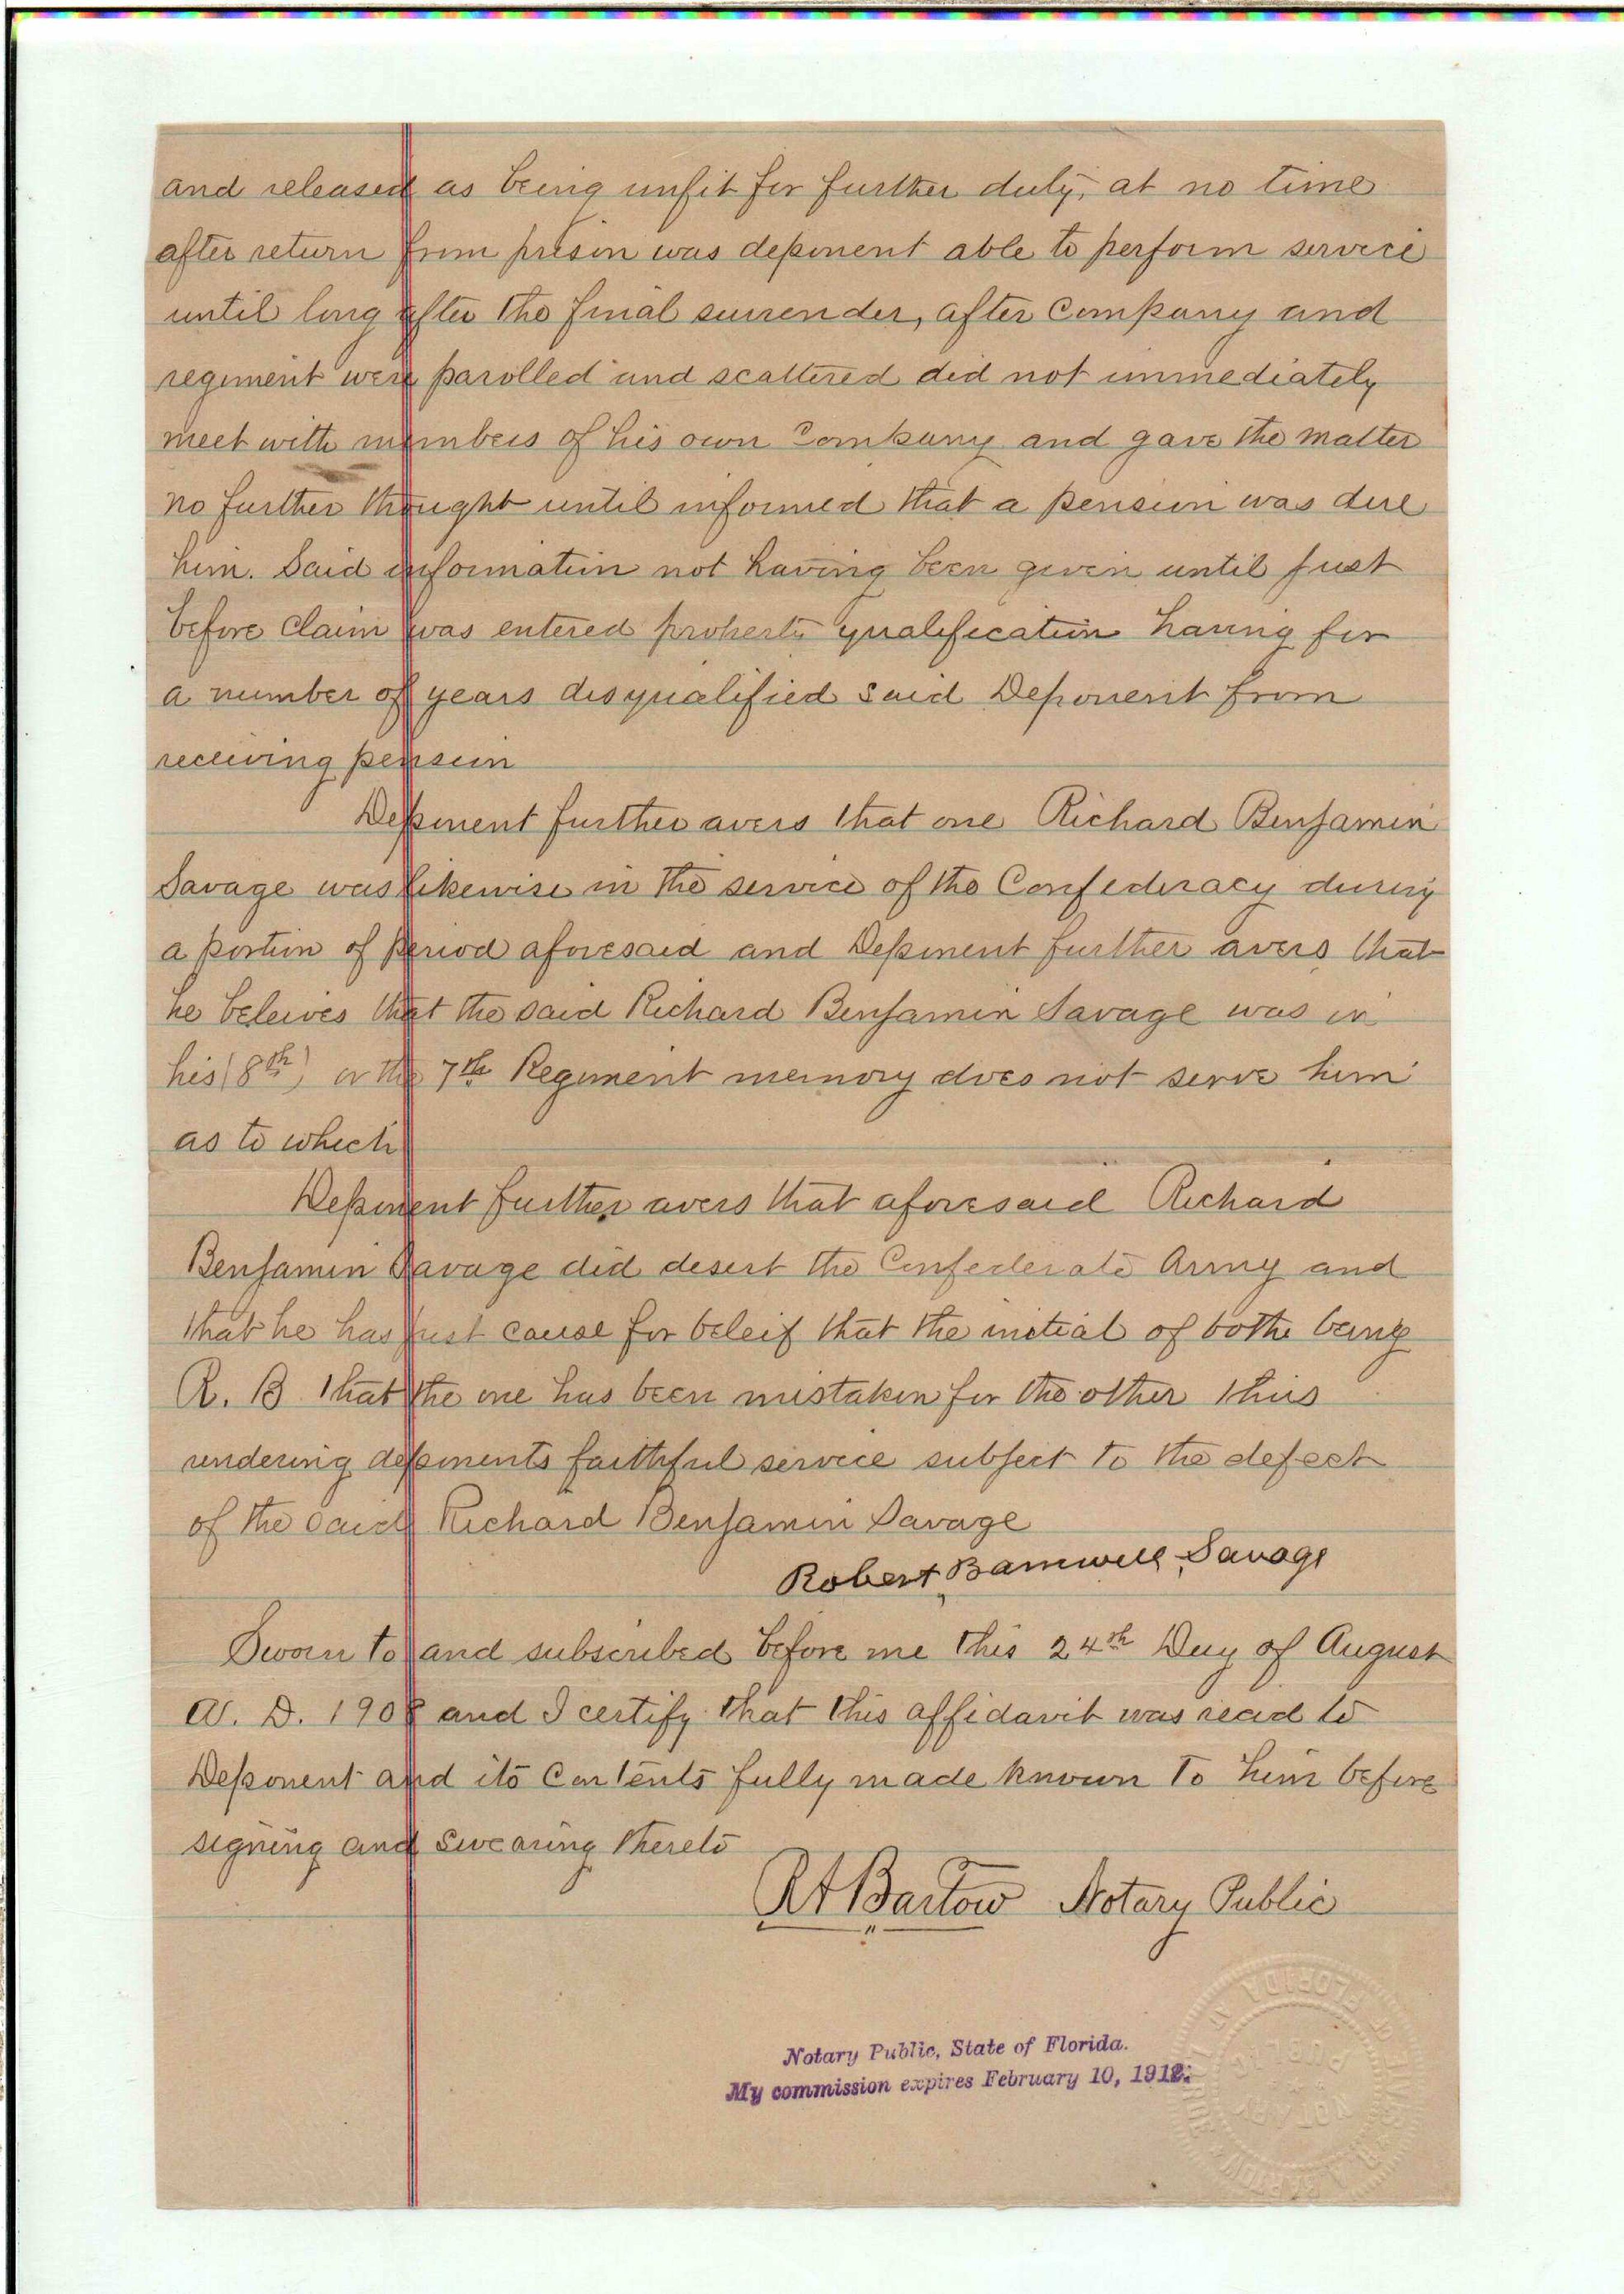 and released as being unfit for further duty, at no time
after return from prison was deponent able to perform service
until long after the final surrender, after Company and
regiment were parolled and scattered did not immediately
meet with members of his own Company and gave the matter
no further thought until informed that a pension was due
him. Said information not having been given until just
before claim was entered property qualification having for
a number of years disqualified said Deponent from
receiving pension
Deponent further avers that one Richard Benjamin
Savage was likewise in the service of the Confederacy during
a portion of period aforesaid and Deponent further avers that
he beleives that the said Richard Benjamin Savage was in
his (8th) or the 7th Regiment memory does not serve him
as to which
Deponent further avers that aforesaid Richard
Benjamin Savage did desert the Confederate Army and
that he has just cause for beleif that the initial of bothe being
R. B. that the one has been mistaken for the other thus
rendering deponents faithful service subject to the defect
of the said Richard Benjamin Savage
Robert Barnwell Savage
Sworn to and subscribed before me this 24th Day of August
A. D. 1908 and I certify that this affidavit was read to
Deponent and its contents fully made known to him before
signing and swearing thereto
RA Bartow Notary Public
Notary Public, State of Florida.
My commission expires February 10, 1912.
FLORIDA
NOTARY
PUBLIC